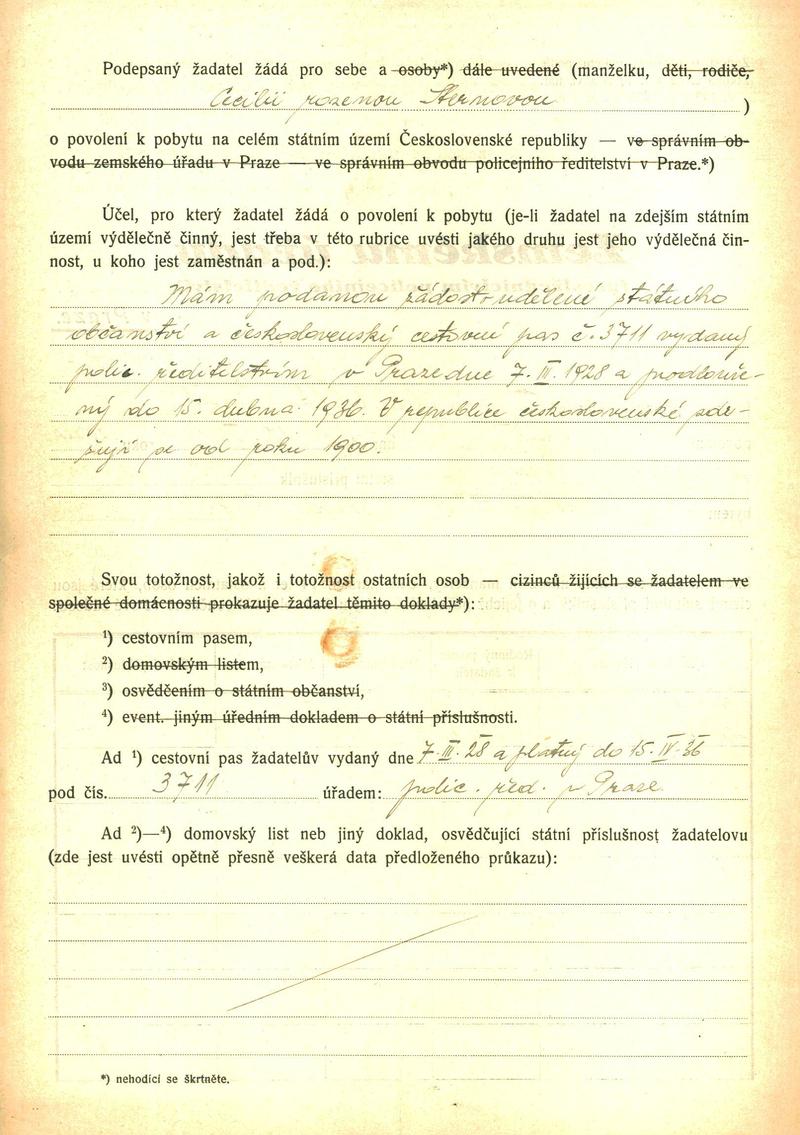 Podepsaný žadatel žádá pro sebe a osoby*) dále uvedené (manželku, děti, rodiče,
Cecilii rozenou Sternovou )
o povolení k pobytu na celém státním území Československé republiky — ve správním ob-
vodu zemského úřadu v Praze — ve správním obvodu policejního ředitelství v Praze.*)
Účel, pro který žadatel žádá o povolení k pobytu (je-li žadatel na zdejším státním
území výdělečně činný, jest třeba v této rubrice uvésti jakého druhu jest jeho výdělečná čin-
nost, u koho jest zaměstnán a pod.):
Mám podanou žádost udělené státního
občanství a československý cestovní pas č. 3711 vydaný
polic. ředitelstvím v Praze dne 7. III. 1928 a prodlouže-
ný do 15. dubna 1936. V republice československé zdr-
žuji se od roku 1900.
Svou totožnost, jakož i totožnost ostatních osob — cizinců žijících se žadatelem ve
společné domácnosti prokazuje žadatel těmito doklady*):
¹) cestovním pasem,
²) domovským listem,
³) osvědčením o státním občanství,
⁴) event. jiným úředním dokladem o státní příslušnosti.
Ad ¹) cestovní pas žadatelův vydaný dne 7. III. 28 a platný do 15. IV. 36
pod čís. 3711 úřadem: polic. řed. v Praze
Ad ²)—⁴) domovský list neb jiný doklad, osvědčující státní příslušnost žadatelovu
(zde jest uvésti opětně přesně veškerá data předloženého průkazu):
*) nehodící se škrtněte.